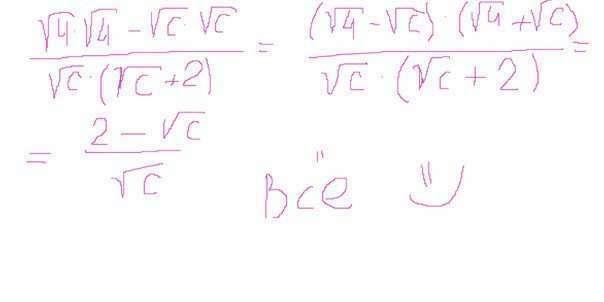 (√4·√4 - √c·√c) / (√c·(√c+2)) = ((√4-√c)·(√4+√c)) / (√c·(√c+2)) =
= (2-√c) / √c
Всё